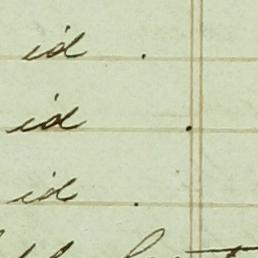 id .
id .
id .